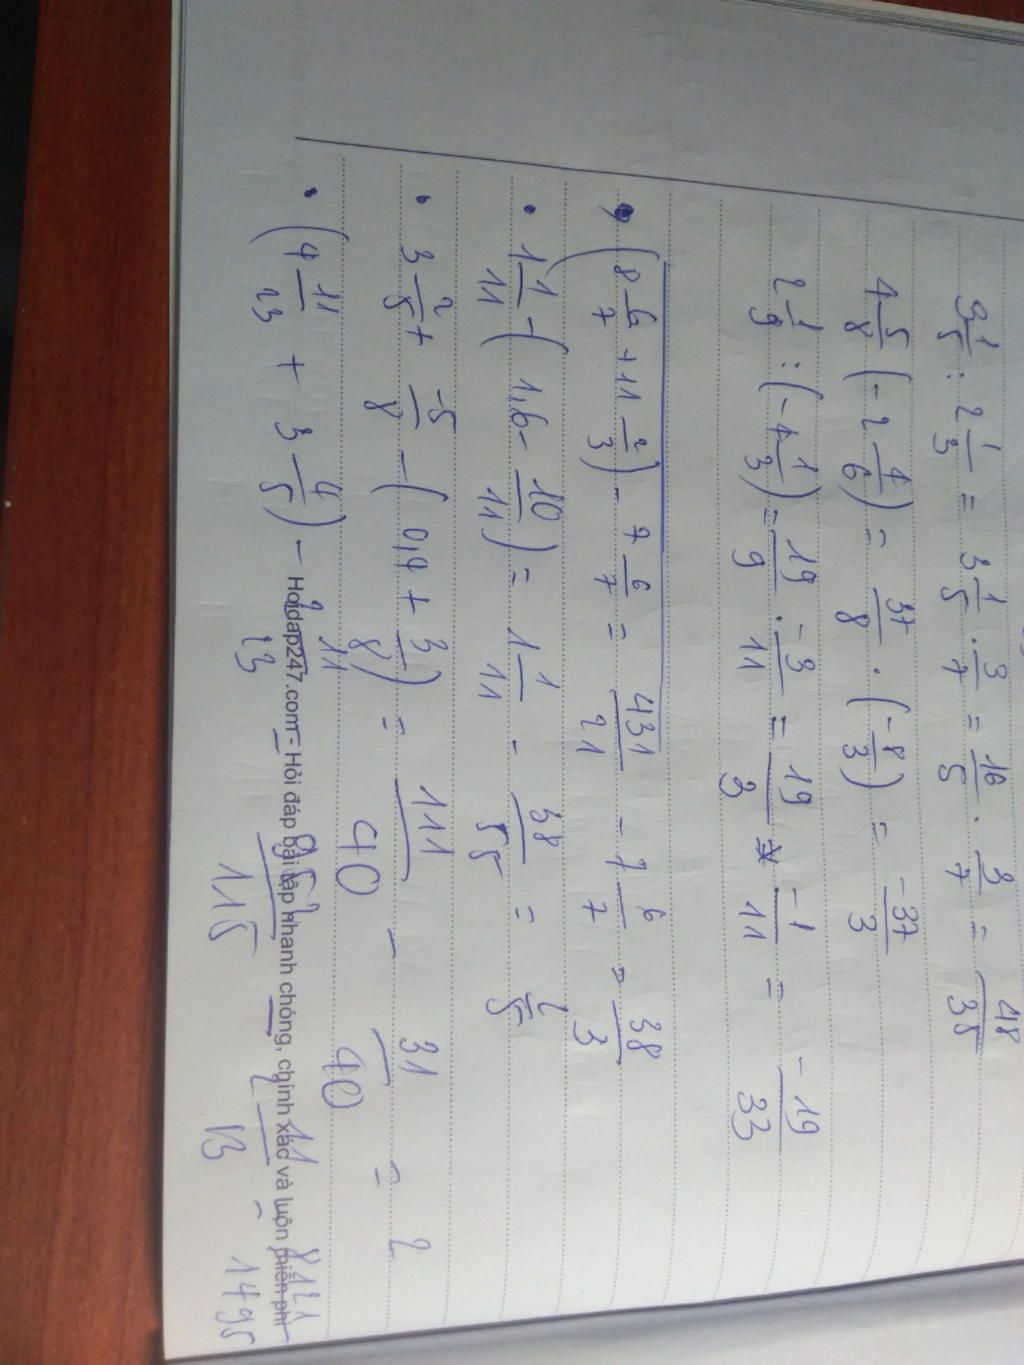 3 1/5 : 2 1/3 = 3 1/5 . 3/7 = 16/5 . 3/7 = 48/35
4 5/8 (- 2 4/6) = 37/8 . (-8/3) = -37/3
2 1/9 : (-4 1/3) = 19/9 . -3/11 = 19/3 * -1/11 = -19/33
(8 6/7 + 11 2/3) - 7 6/7 = 431/21 - 7 6/7 = 38/3
1 1/11 - (1,6 - 10/11) = 1 1/11 - 38/55 = 2/5
3 2/5 + -5/8 - (0,4 + 3/8) = 111/40 - 31/40 = 2
(4 11/23 + 3 4/5) - 2 11/23 = 952/115 - 2 11/13 = 8121/1495
Hoidap247.com - Hỏi đáp bài tập nhanh chóng, chính xác và luôn miễn phí